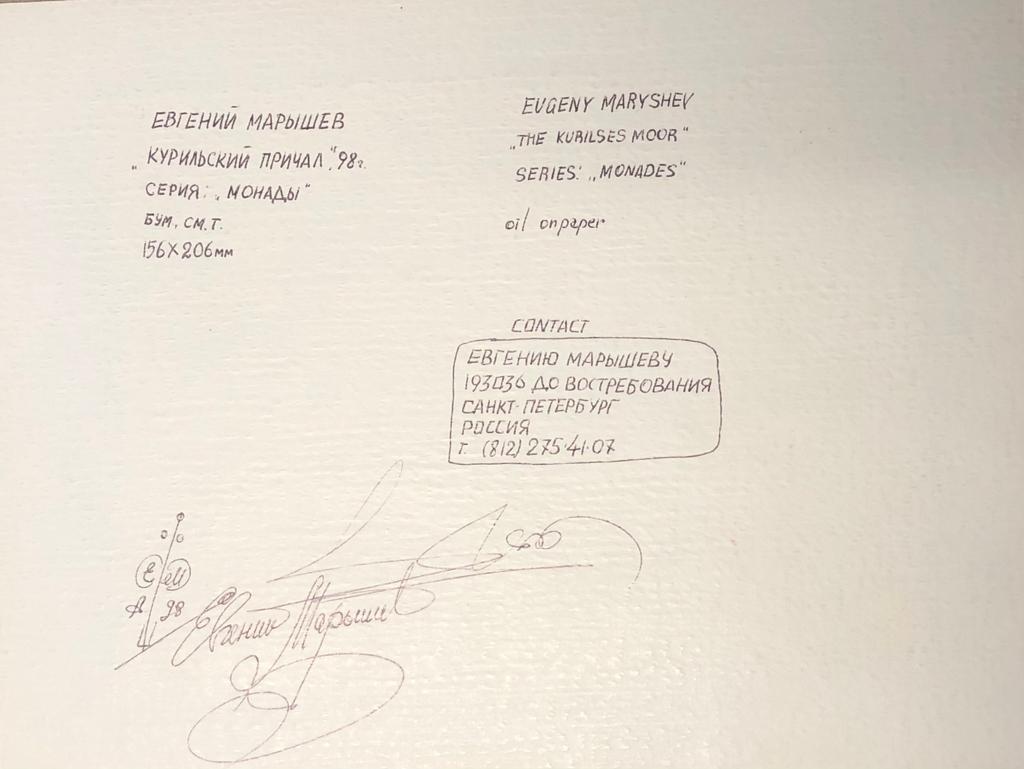 ЕВГЕНИЙ МАРЫШЕВ
„КУРИЛЬСКИЙ ПРИЧАЛ", 98г.
СЕРИЯ: „МОНАДЫ"
БУМ, СМ. Т.
156X206мм
EUGENY MARYSHEV
„THE KURILSES MOOR"
SERIES: „MONADES"
oil onpaper
CONTACT
ЕВГЕНИЮ МАРЫШЕВУ
193036 ДО ВОСТРЕБОВАНИЯ
САНКТ-ПЕТЕРБУРГ
РОССИЯ
Т. (812) 275·41·07
Е М
А 98
Евгений Марышев